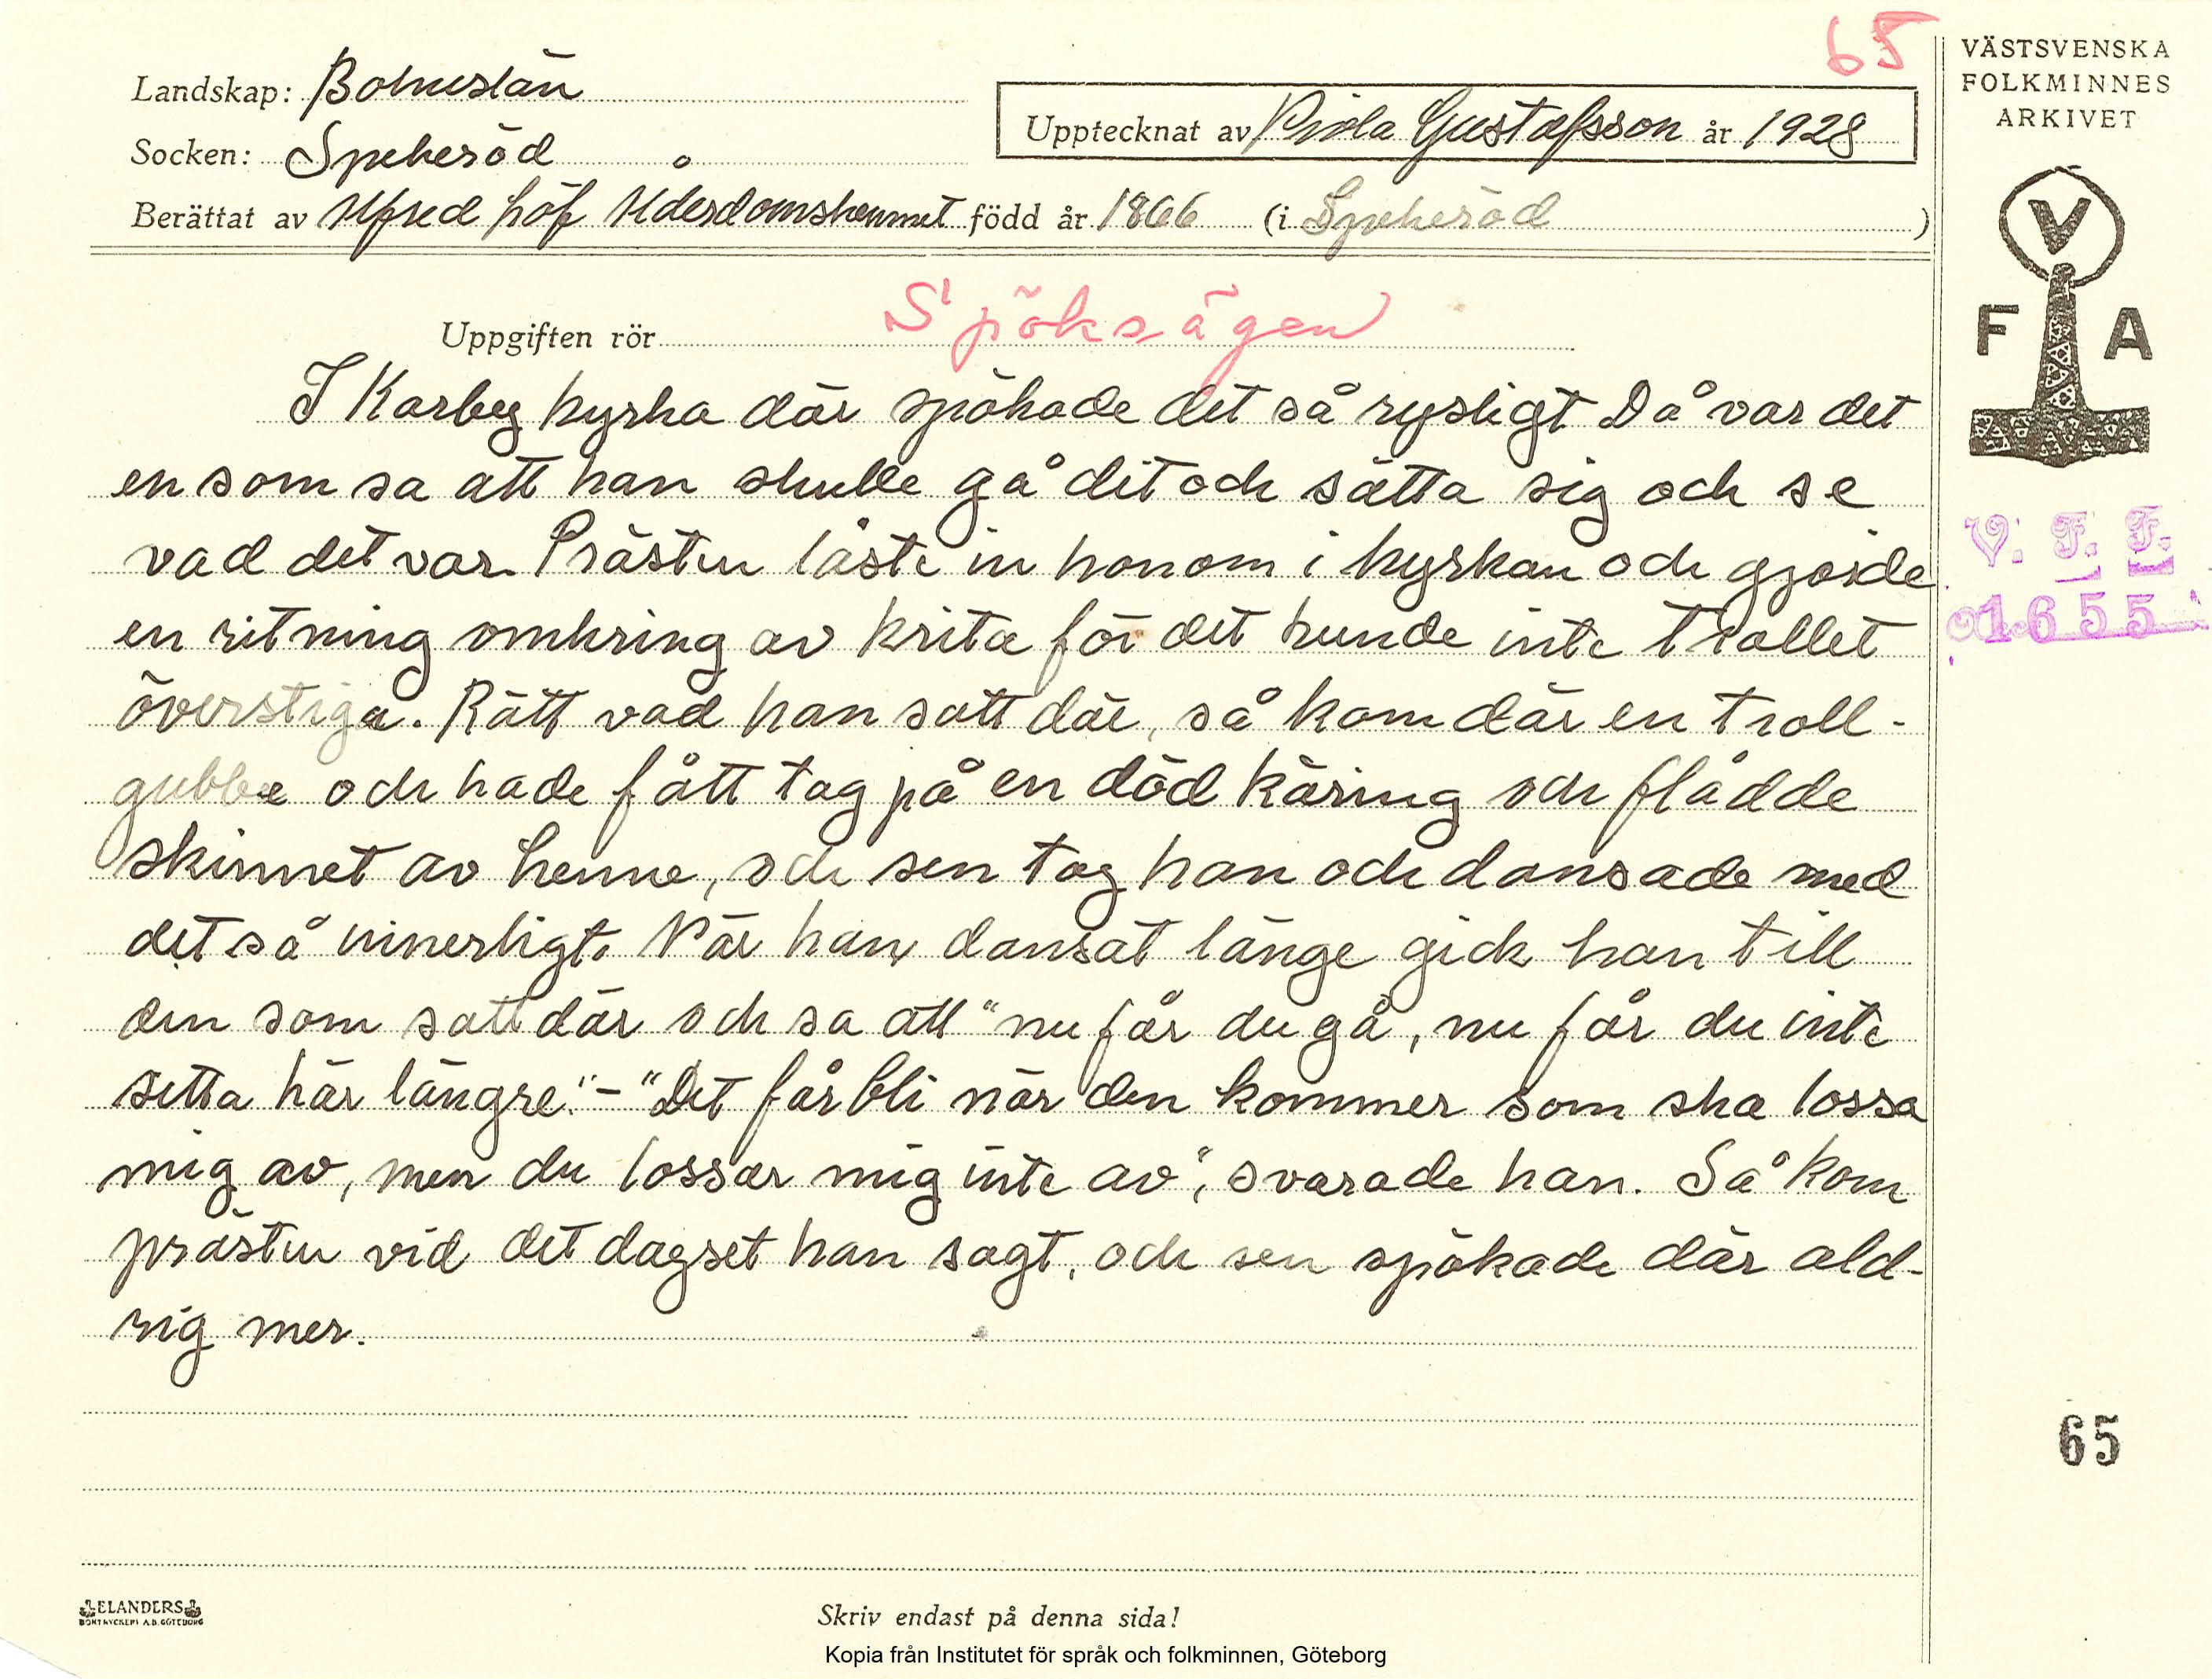 65
VÄSTSVENSKA
FOLKMINNES
ARKIVET
Landskap: Bohuslän
Upptecknat av Viola Gustafsson år 1928
Socken: Spekeröd
Berättat av Alfred Höf Ålderdomshemmet född år 1866 (i Spekeröd )
V
F A
Uppgiften rör Spöksägen
I Karby kyrka där spökade det så rysligt Då var det
en som sa att han skulle gå dit och sätta sig och se
vad det var. Prästen låste in honom i kyrkan och gjorde
en ritning omkring av krita för det kunde inte trollet
överstiga. Rätt vad han satt där, så kom där en troll-
gubbe och hade fått tag på en död käring och flådde
skinnet av henne, och sen tog han och dansade med
det så innerligt. När han dansat länge gick han till
den som satt där och sa att "nu får du gå, nu får du inte
sitta här längre." - "Det får bli när den kommer som ska lossa
mig av, men du lossar mig inte av", svarade han. Så kom
prästen vid det dagset han sagt, och sen spökade där ald-
rig mer.
V. F. F.
1655
65
ELANDERS
BOKTRYCKERI A.B. GÖTEBORG
Skriv endast på denna sida!
Kopia från Institutet för språk och folkminnen, Göteborg